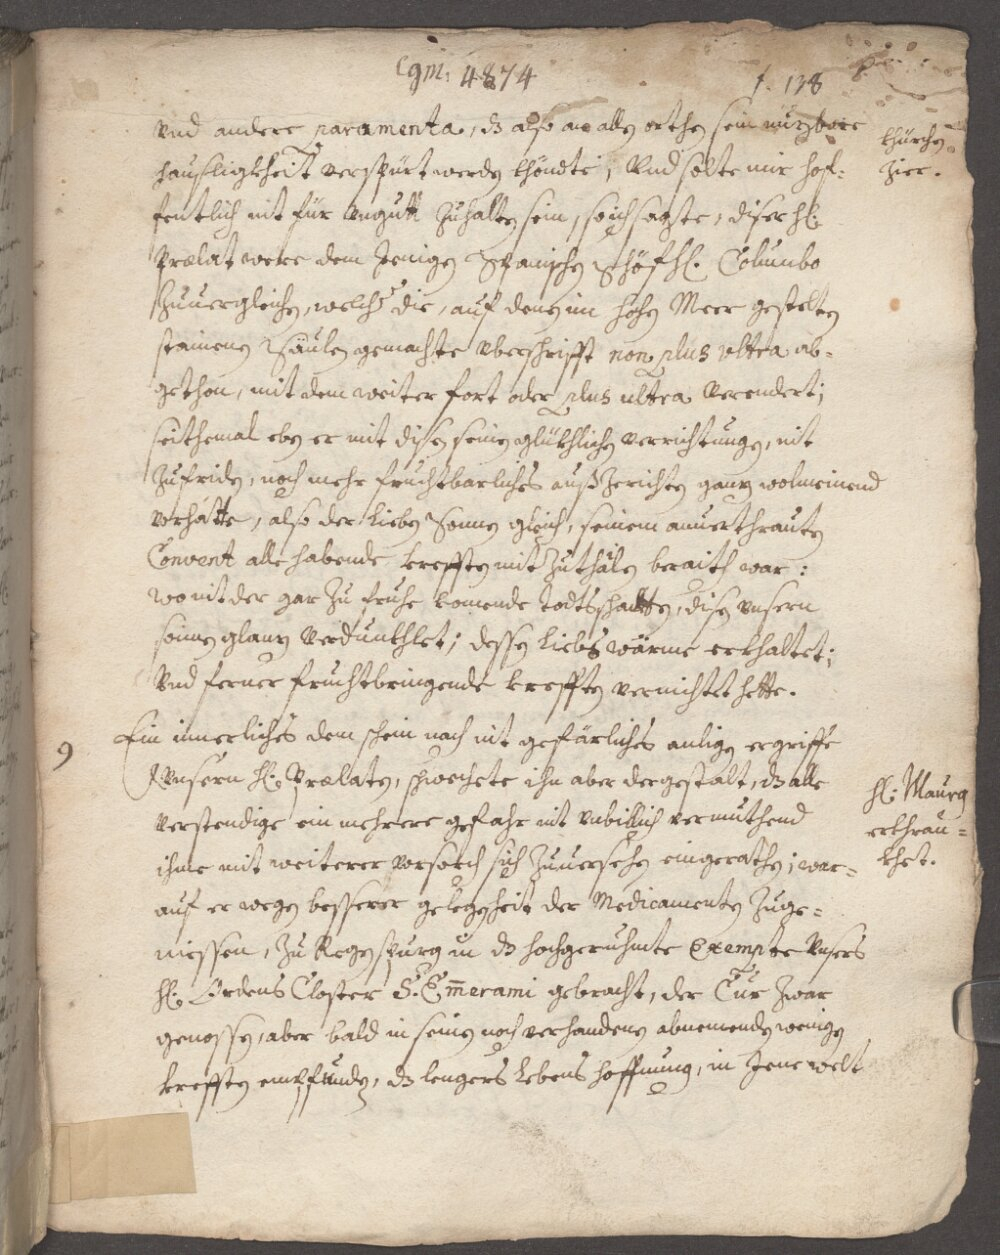 Cgm: 4874
f. 138
Vnd andere paramenta, dz also an allen orthen sein nuzbare
haußligkheit verspürt werden khöndte; Vnd solte mir hof=
fentlich nit für vnguet zuhalten sein, so ich sagte, diser hl:
Prælat were dem Jenigen Spanischen Schöfhl. Columbo
zuuergleichen, welcher die, auf denen im hohen Meer gestelten
stainenen Säulen gemachte vberschrifft non plus vltra ab=
gethon, mit dem weiter fort oder plus ultra verendert;
seithemal eben er mit disen seinen glükhlichen verrichtungen, nit
zufriden, noch mehr fruchtbarliches außzerichten ganz wolmeinend
vorhätte, also der lieben Sonnen gleich, seinem anuerthrauten
Convent alle habende kreffte mit zuthailen beraith war:
wo nit der gar zu fruhe komende todtsschatten, disen vnsern
sonnenglanz verdunkhlet; dessen liebs wärme erkhaltet;
Vnd ferner fruchtbringende kreffte vernichtet hette.
9 Ein innerliches dem schein nach nit gefärliches anligen ergriffe
Vnsern hl: Prælaten, schwechete ihn aber dergestalt, dz alle
verstendige ein mehrere gefahr nit vnbillich vermuthend
ihme mit weiterer vorsorch sich zuuersehen eingerathen; war=
auf er wegen besserer gelegenheit der Medicamenten zuge=
niessen, zu Regenspurg in dz hochgeruhmte Exempte Vnsers
hl: Ordens Closter S. Emerami gebracht, der Cur zwar
genossen, aber bald in seinen noch verhandenen abnemenden wenigen
kreffte empfunden, dz lengers Lebens hoffnung, in Jene welt
khürchen
zier.
hl: Maurg
erkhran=
khet.